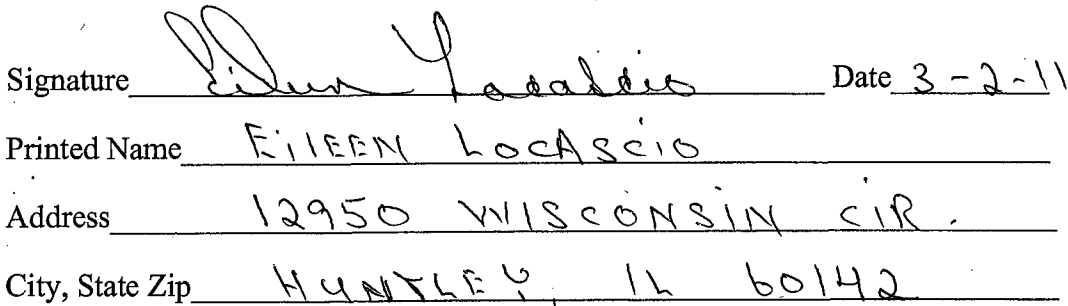 Signature Eileen LoCascio Date 3-2-11
Printed Name EiLEEN LoCAScio
Address 12950 WISCONSIN CIR.
City, State Zip HUNTLEY, IL 60142